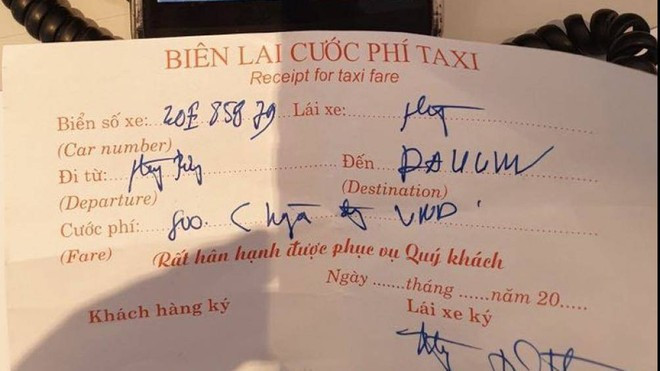 BIÊN LAI CƯỚC PHÍ TAXI
Receipt for taxi fare
Biển số xe: 20E 858 79 Lái xe:
(Car number)
Đi từ: Đến
(Departure) (Destination)
Cước phí: 800. VND
(Fare) Rất hân hạnh được phục vụ Quý khách
Ngày.......tháng.......năm 20.....
Khách hàng ký Lái xe ký